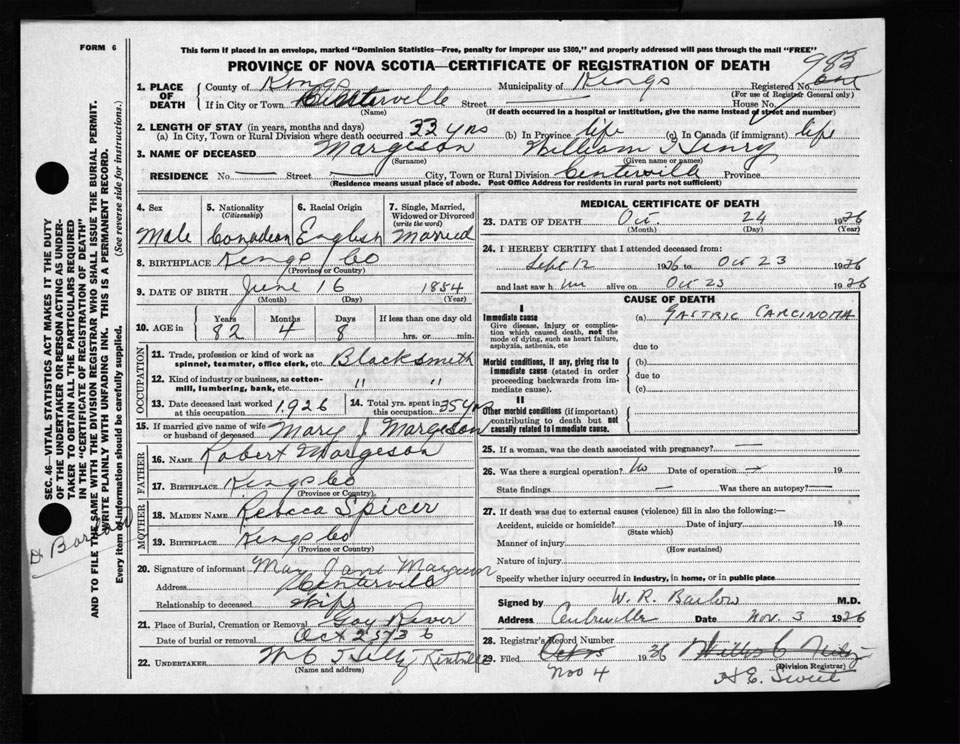 FORM 6
This form if placed in an envelope, marked "Dominion Statistics—Free, penalty for improper use $300," and properly addressed will pass through the mail "FREE"
PROVINCE OF NOVA SCOTIA—CERTIFICATE OF REGISTRATION OF DEATH
983
1. PLACE OF DEATH
County of Kings Municipality of Kings Registered No.
(For use of Registrar General only)
If in City or Town Centerville Street House No.
(Name) (If death occurred in a hospital or institution, give the name instead of street and number)
2. LENGTH OF STAY (in years, months and days)
(a) In City, Town or Rural Division where death occurred 33 yrs (b) In Province life (c) In Canada (if immigrant) life
3. NAME OF DECEASED Margeson William Henry
(Surname) (Given name or names)
RESIDENCE No. — Street — City, Town or Rural Division Centerville Province
(Residence means usual place of abode. Post Office Address for residents in rural parts not sufficient)
4. Sex 5. Nationality (Citizenship) 6. Racial Origin 7. Single, Married, Widowed or Divorced (write the word)
Male Canadian English Married
8. BIRTHPLACE Kings Co
(Province or Country)
9. DATE OF BIRTH June 16 1854
(Month) (Day) (Year)
10. AGE in Years Months Days If less than one day old
82 4 8 hrs. or min.
OCCUPATION
11. Trade, profession or kind of work as spinner, teamster, office clerk, etc. Blacksmith
12. Kind of industry or business, as cotton-mill, lumbering, bank, etc. " "
13. Date deceased last worked at this occupation 1926 14. Total yrs. spent in this occupation 35 yrs
15. If married give name of wife or husband of deceased Mary J Margeson
FATHER
16. NAME Robert Margeson
17. BIRTHPLACE Kings Co
(Province or Country)
MOTHER
18. MAIDEN NAME Rebecca Spicer
19. BIRTHPLACE Kings Co
(Province or Country)
20. Signature of informant Mary Jane Margeson
Address Centerville
Relationship to deceased Wife
21. Place of Burial, Cremation or Removal Gay River
Date of burial or removal Oct 25 1936
22. UNDERTAKER Kentville
(Name and address)
MEDICAL CERTIFICATE OF DEATH
23. DATE OF DEATH Oct 24 1936
(Month) (Day) (Year)
24. I HEREBY CERTIFY that I attended deceased from:
Sept 12 1936 to Oct 23 1936
and last saw him alive on Oct 23 1936
CAUSE OF DEATH
I
Immediate cause (a) GASTRIC CARCINOMA
Give disease, injury or complication which caused death, not the mode of dying, such as heart failure, asphyxia, asthenia, etc
due to
Morbid conditions, if any, giving rise to immediate cause (stated in order proceeding backwards from immediate cause).
(b)
due to
(c)
II
Other morbid conditions (if important) contributing to death but not causally related to immediate cause.
25. If a woman, was the death associated with pregnancy? —
26. Was there a surgical operation? No Date of operation — 19
State findings — Was there an autopsy? —
27. If death was due to external causes (violence) fill in also the following:—
Accident, suicide or homicide? Date of injury 19
(State which)
Manner of injury
(How sustained)
Nature of injury
Specify whether injury occurred in industry, in home, or in public place
Signed by W. R. Barlow M.D.
Address Centreville Date Nov. 3 1936
28. Registrar's Record Number
29. Filed 1936
(Division Registrar)
Nov 4
SEC. 46—VITAL STATISTICS ACT MAKES IT THE DUTY
OF THE UNDERTAKER OR PERSON ACTING AS UNDER-
TAKER TO OBTAIN ALL THE PARTICULARS REQUIRED
IN THE "CERTIFICATE OF REGISTRATION OF DEATH"
AND TO FILE THE SAME WITH THE DIVISION REGISTRAR WHO SHALL ISSUE THE BURIAL PERMIT.
WRITE PLAINLY WITH UNFADING INK. THIS IS A PERMANENT RECORD.
Every item of information should be carefully supplied. (See reverse side for instructions.)